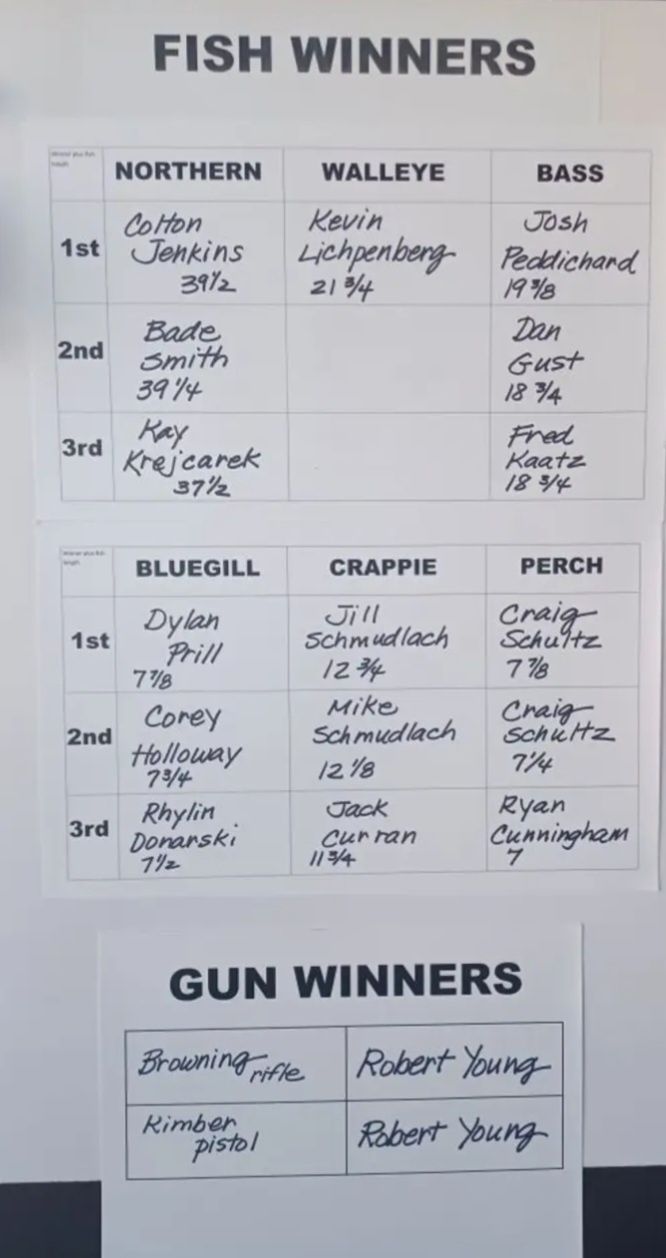 FISH WINNERS
NORTHERN WALLEYE BASS
1st
Colton
Jenkins
39 1/2
Kevin
Lichpenberg
21 3/4
Josh
Peddichard
19 3/8
2nd
Bade
Smith
39 1/4
Dan
Gust
18 3/4
3rd
Kay
Krejcarek
37 1/2
Fred
Kaatz
18 3/4
BLUEGILL CRAPPIE PERCH
1st
Dylan
Prill
7 7/8
Jill
Schmudlach
12 3/4
Craig
Schultz
7 7/8
2nd
Corey
Holloway
7 3/4
Mike
Schmudlach
12 1/8
Craig
Schultz
7 1/4
3rd
Rhylin
Donarski
7 1/2
Jack
Curran
11 3/4
Ryan
Cunningham
7
GUN WINNERS
Browning
rifle
Robert Young
Kimber
pistol
Robert Young